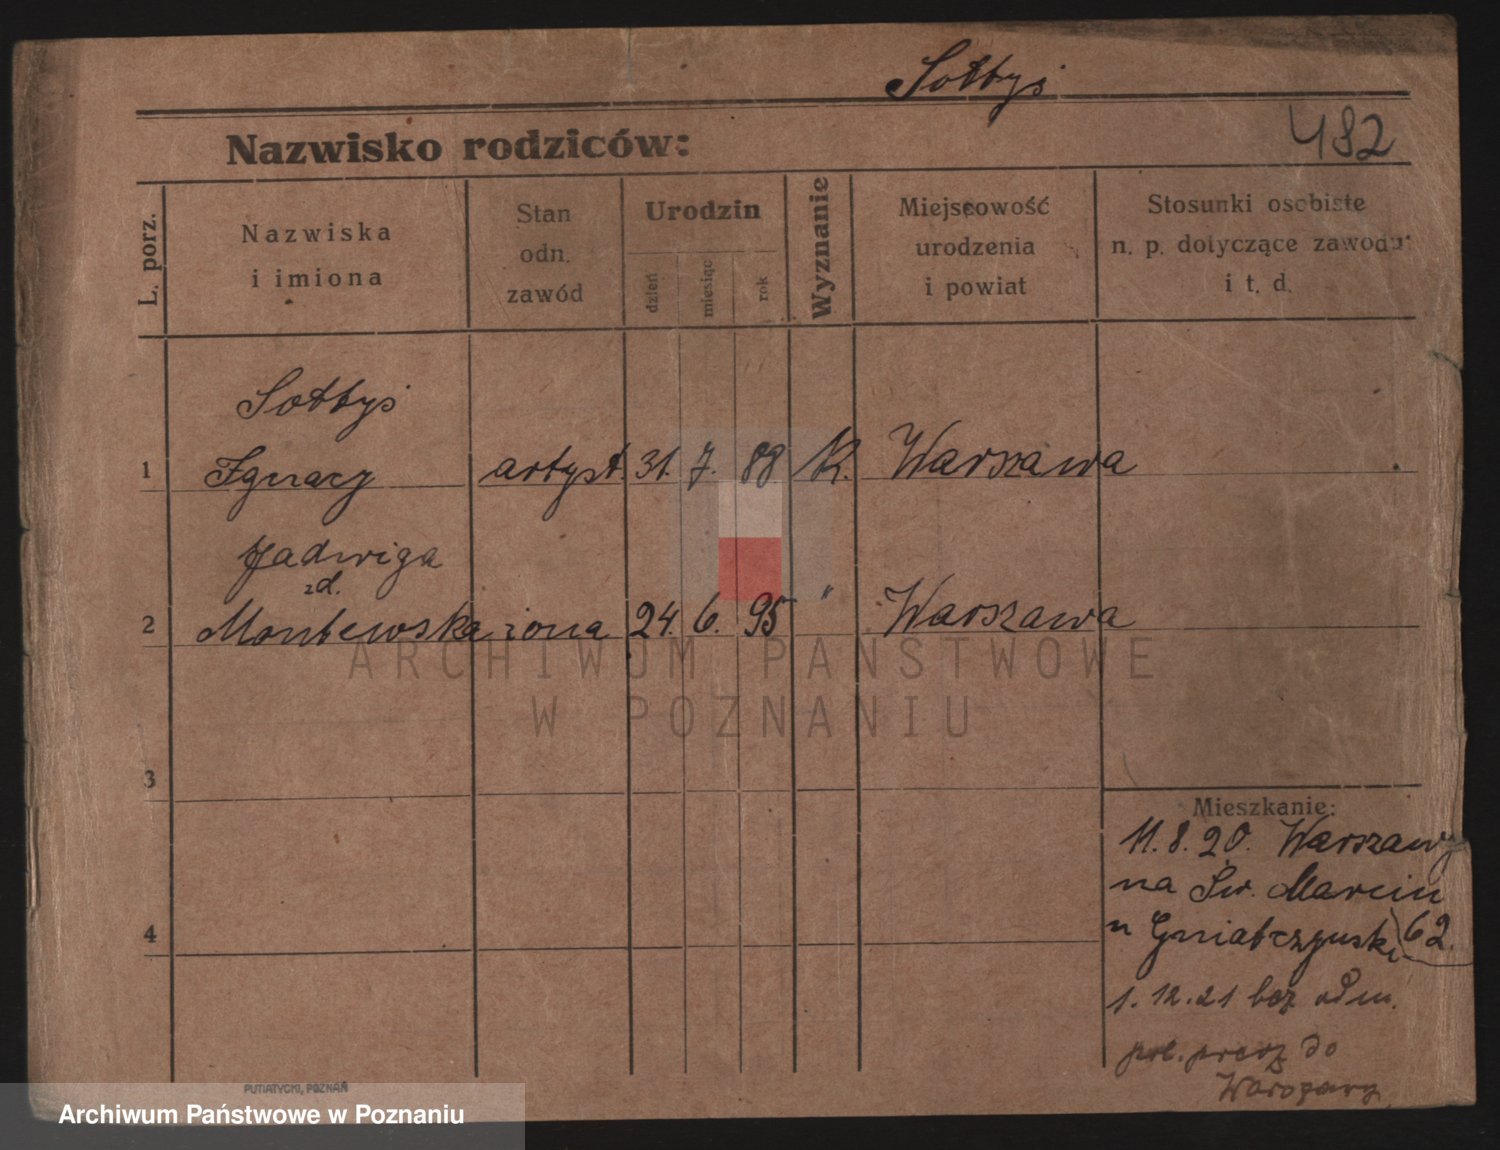 Sołtys
Nazwisko rodziców:
482
L. porz.
Nazwiska
i imiona
Stan
odn.
zawód
Urodzin
dzień
miesiąc
rok
Wyznanie
Miejscowość
urodzenia
i powiat
Stosunki osobiste
n. p. dotyczące zawodu
i t. d.
Sołtys
1 Ignacy artyst. 31. 7. 88 K. Warszawa
Jadwiga
zd.
2 żona 24. 6. 95 " Warszawa
ARCHIWUM PAŃSTWOWE
W POZNANIU
3
4
Mieszkanie:
11.8.20. Warszawy
na Św. Marcin
62.
1.12.21 bez odm.
do
Warszawy
PUTIATYCKI, POZNAŃ
Archiwum Państwowe w Poznaniu